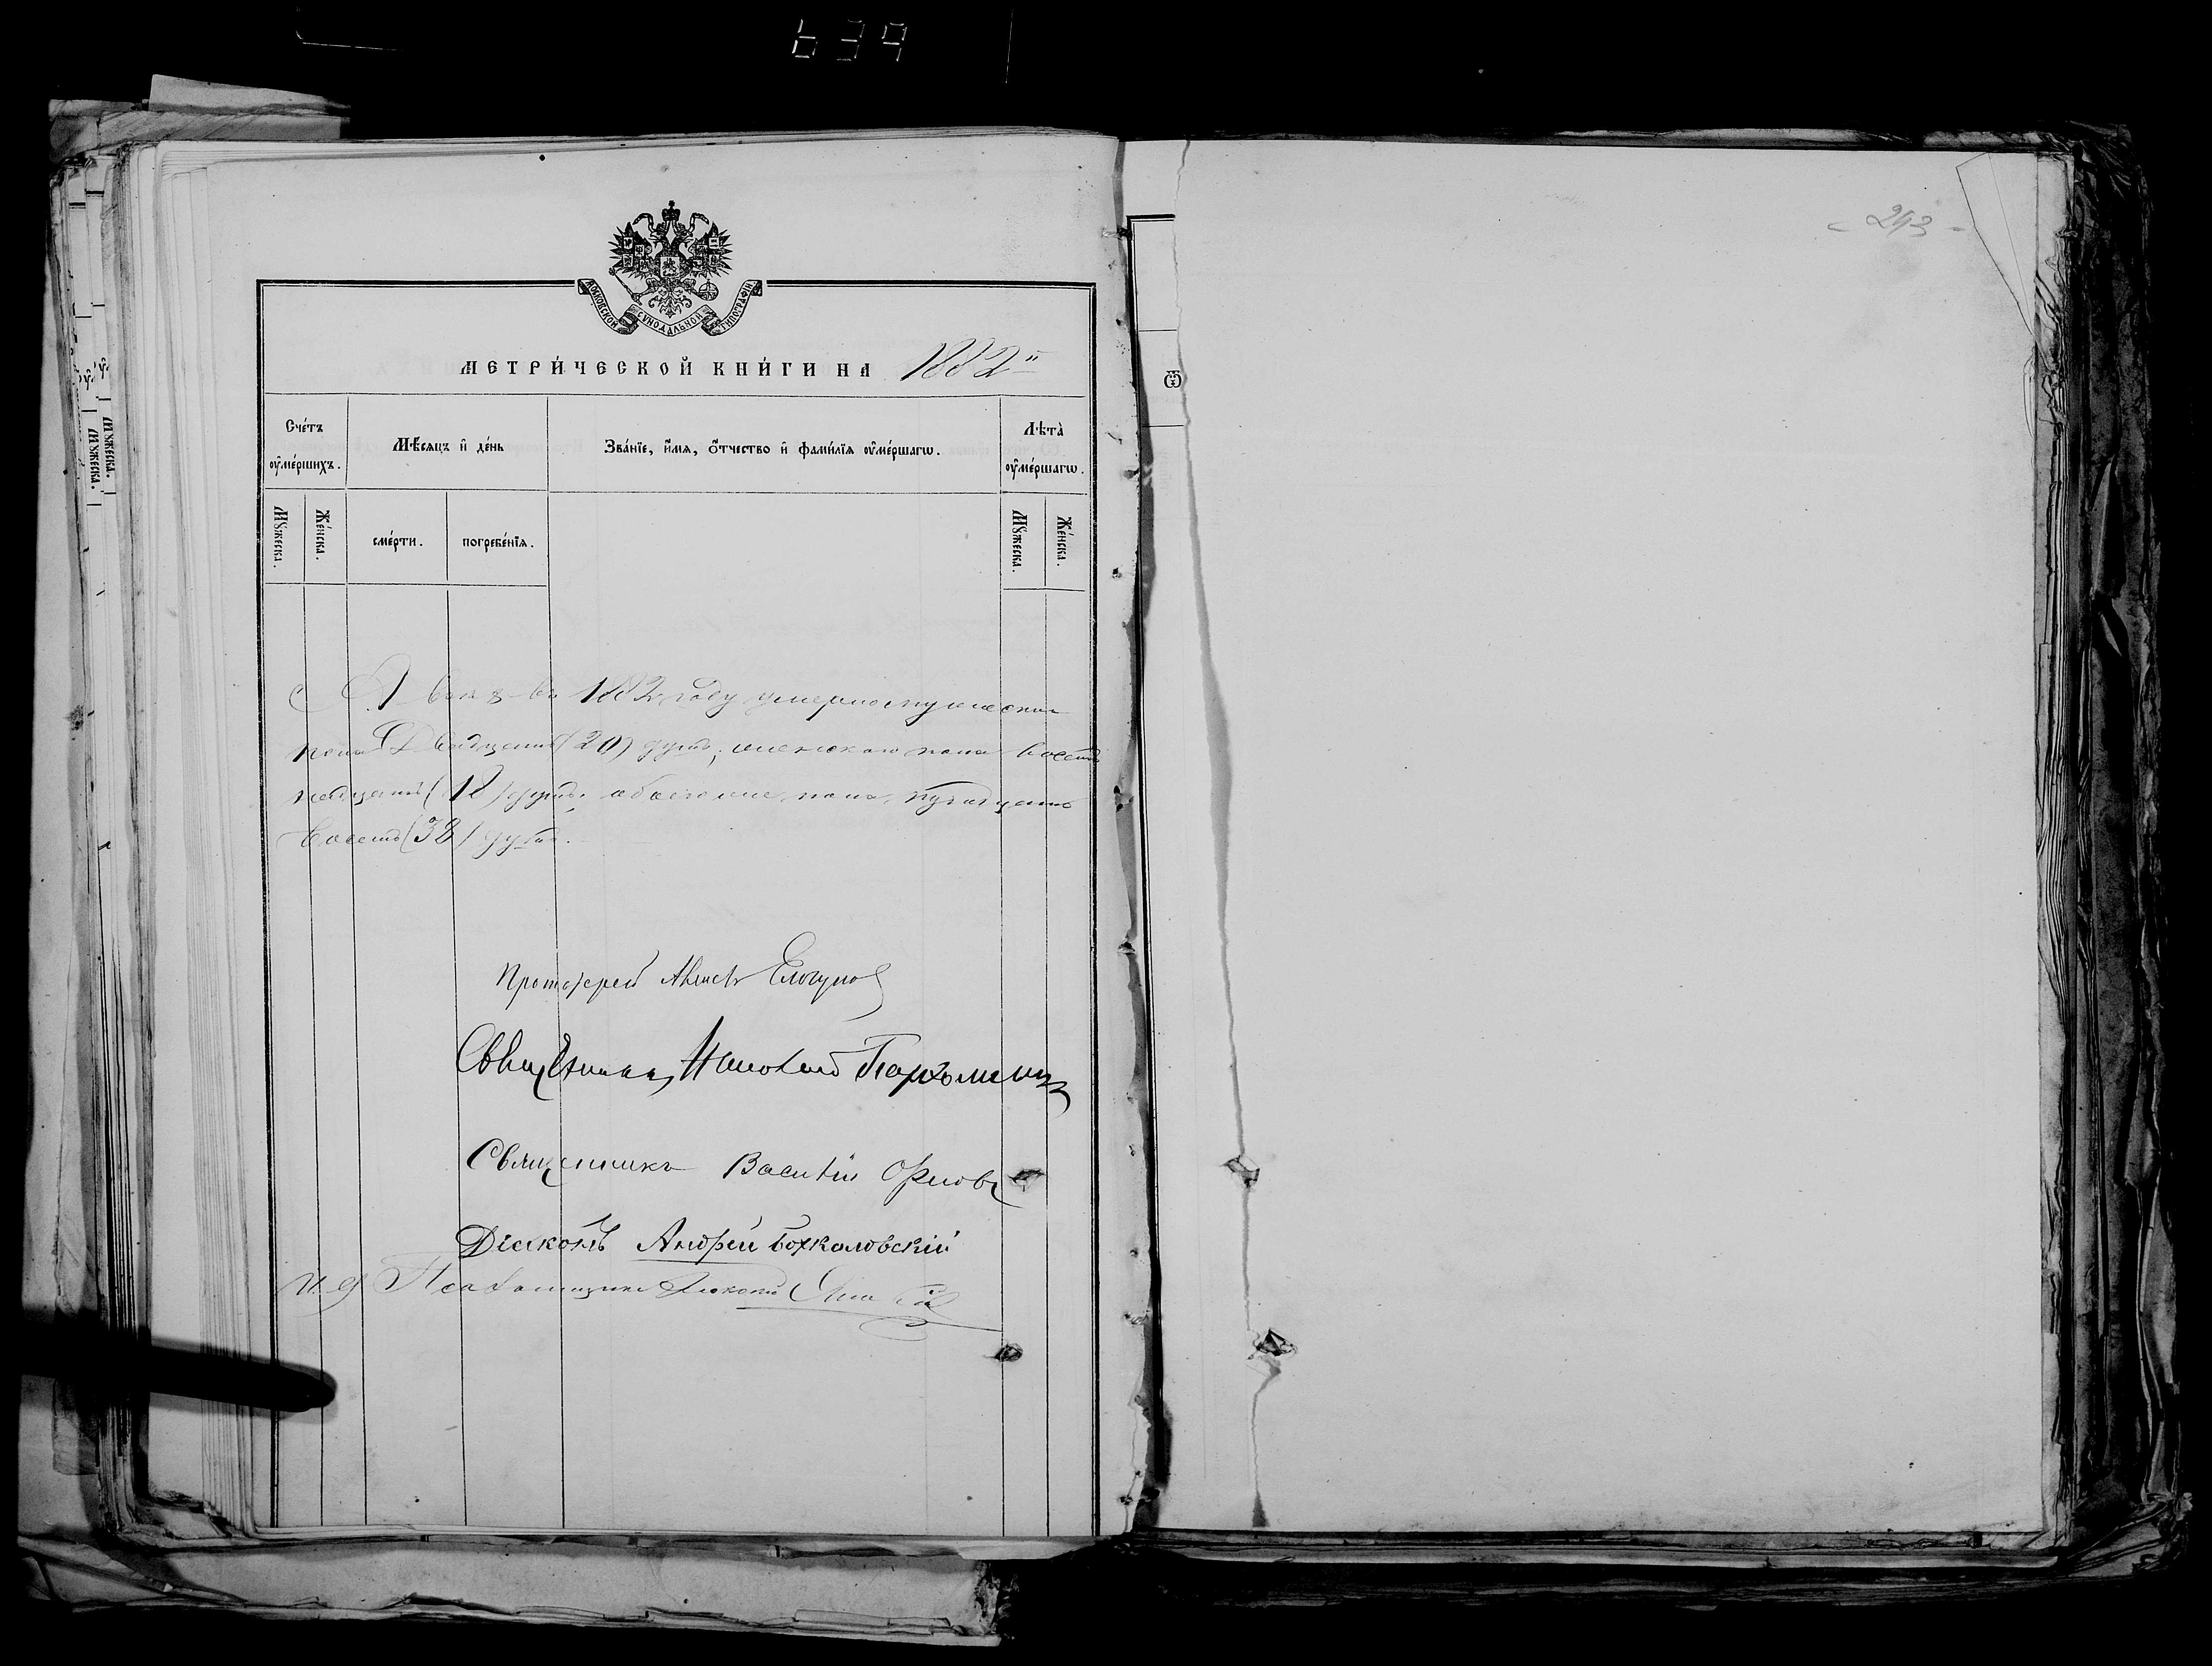 639
- 243 -
МОСКОВСКОЙ СѴНОДАЛЬНОЙ ТИПОГРАФІИ
МЕТРИ́ЧЕСКОЙ КНИ́ГИ НА 1882й
Сче́тъ ᲂу҆ме́ршихъ.
Мѣ́сяцъ и҆ де́нь
Зва́нїе, и҆́мѧ, ѻ҆́тчество и҆ фами́лїѧ ᲂу҆ме́ршагѡ.
Лѣта̀ ᲂу҆ме́ршагѡ.
Мꙋ́жеска.
Же́нска.
сме́рти.
погребе́нїѧ.
Мꙋ́жеска.
Же́нска.
Ѿ
А всего въ 1882 году умерло мужескаго
пола Двадцать (20) душъ, женскаго пола восем
надцать (18) душъ, обоего пола тридцать
восемь (38) душъ.
Протоіерей
Священникъ Пархоменко
Священникъ Василій Орловъ
Діаконъ Андрей
И. д. Псаломщика